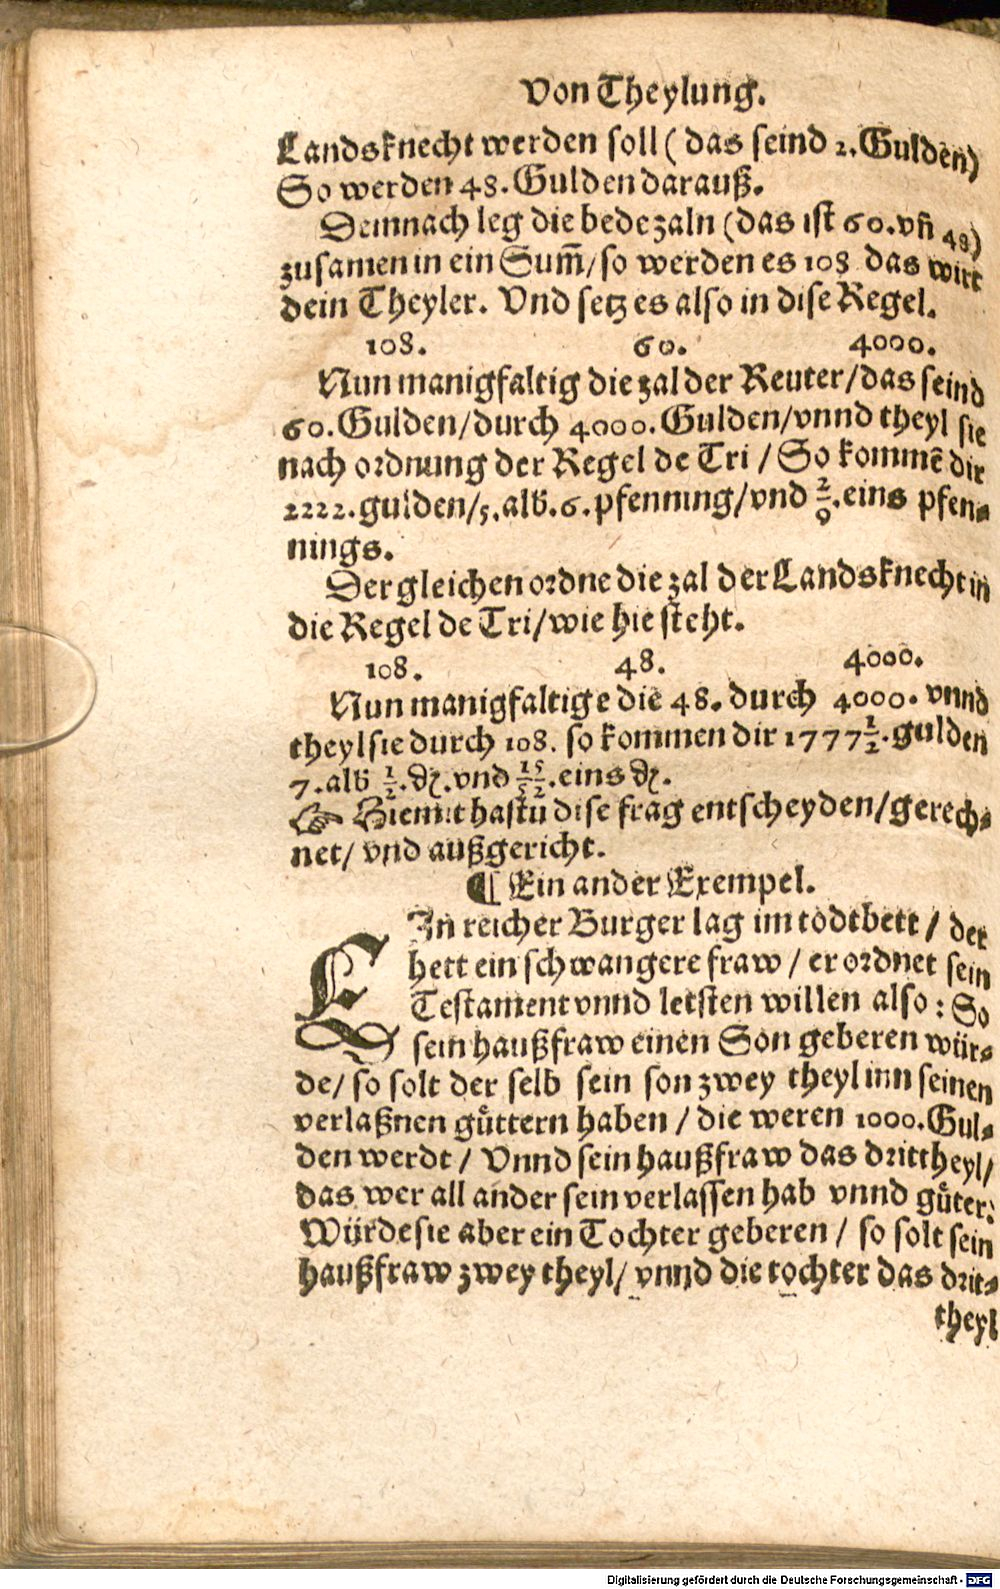 Von Theylung.
Landsknecht werden soll ( das seind 2. Gulden)
So werden 48. Gulden darauß.
Demnach leg die bede zaln (das ist 60. vñ 48)
zusamen in ein Sum̃/ so werden es 108 das wirt
dein Theyler. Vnd setz es also in dise Regel.
108. 60. 4000.
Nun manigfaltig die zal der Reuter/ das seind
60. Gulden/ durch 4000. Gulden/ vnnd theyl sie
nach ordnung der Regel de Tri / So kommẽ dir
2222. gulden/ 5. alb. 6. pfenning/ vnd 2/9. eins pfen-
nings.
Dergleichen ordne die zal der Landsknecht in
die Regel de Tri/ wie hie steht.
108. 48. 4000.
Nun manigfaltige die 48. durch 4000. vnnd
theyl sie durch 108. so kommen dir 1777 1/2. gulden
7. alb 1/2. ₰. vnd 15/52. eins ₰.
☞ Hiemit hastu dise frag entscheyden/ gerech-
net/ vnd außgericht.
¶ Ein ander Exempel.
EJn reicher Burger lag im todtbett / der
hett ein schwangere fraw / er ordnet sein
Testament vnnd letsten willen also : So
sein haußfraw einen Son geberen wür-
de/ so solt der selb sein son zwey theyl inn seinen
verlaßnen gůttern haben / die weren 1000. Gul-
den werdt / Vnnd sein haußfraw das drittheyl/
das wer all ander sein verlassen hab vnnd gůter:
Würde sie aber ein Tochter geberen / so solt sein
haußfraw zwey theyl/ vnnd die tochter das drit-
theyl
Digitalisierung gefördert durch die Deutsche Forschungsgemeinschaft - DFG